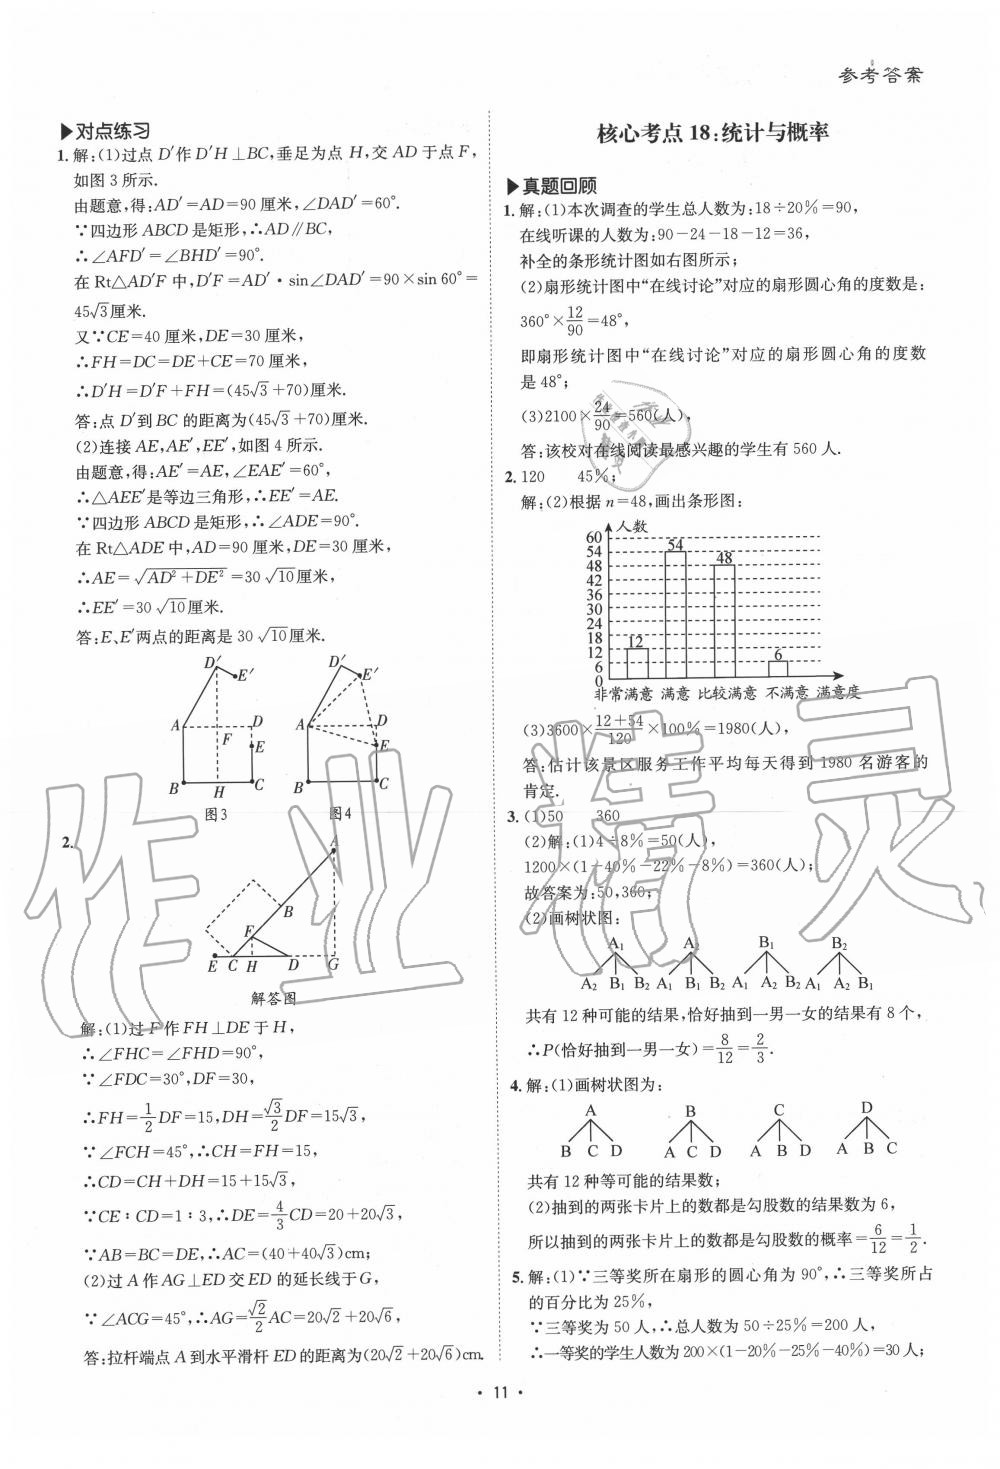 参考答案
▶对点练习
1. 解:(1)过点 D′作 D′H⊥BC,垂足为点 H,交 AD 于点 F,
如图 3 所示.
由题意,得:AD′=AD=90 厘米,∠DAD′=60°.
∵四边形 ABCD 是矩形,∴AD∥BC,
∴∠AFD′=∠BHD′=90°.
在 Rt△AD′F 中,D′F=AD′·sin∠DAD′=90×sin 60°=
45√3厘米.
又∵CE=40 厘米,DE=30 厘米,
∴FH=DC=DE+CE=70 厘米,
∴D′H=D′F+FH=(45√3+70)厘米.
答:点 D′到 BC 的距离为(45√3+70)厘米.
(2)连接 AE,AE′,EE′,如图 4 所示.
由题意,得:AE′=AE,∠EAE′=60°,
∴△AEE′是等边三角形,∴EE′=AE.
∵四边形 ABCD 是矩形,∴∠ADE=90°.
在 Rt△ADE 中,AD=90 厘米,DE=30 厘米,
∴AE=√(AD²+DE²)=30√10厘米,
∴EE′=30√10厘米.
答:E、E′两点的距离是 30√10厘米.
D′ E′ A F D E B H C
图3
D′ E′ A D E B C
图4
2.
A B F E C H D G
解答图
解:(1)过 F 作 FH⊥DE 于 H,
∴∠FHC=∠FHD=90°,
∵∠FDC=30°,DF=30,
∴FH=1/2DF=15,DH=√3/2DF=15√3,
∵∠FCH=45°,∴CH=FH=15,
∴CD=CH+DH=15+15√3,
∵CE∶CD=1∶3,∴DE=4/3CD=20+20√3,
∵AB=BC=DE,∴AC=(40+40√3)cm;
(2)过 A 作 AG⊥ED 交 ED 的延长线于G,
∵∠ACG=45°,∴AG=√2/2AC=20√2+20√6,
答:拉杆端点 A 到水平滑杆 ED 的距离为(20√2+20√6)cm.
核心考点 18:统计与概率
▶真题回顾
1. 解:(1)本次调查的学生总人数为:18÷20%=90,
在线听课的人数为:90-24-18-12=36,
补全的条形统计图如右图所示;
(2)扇形统计图中“在线讨论”对应的扇形圆心角的度数是:
360°×12/90=48°,
即扇形统计图中“在线讨论”对应的扇形圆心角的度数
是 48°;
(3)2100×24/90=560(人),
答:该校对在线阅读最感兴趣的学生有 560 人.
2. 120 45%;
解:(2)根据 n=48,画出条形图:
人数
60
54 54
48 48
42
36
30
24
18
12 12
6 6
0
非常满意 满意 比较满意 不满意 满意度
(3)3600×(12+54)/120×100%=1980(人),
答:估计该景区服务工作平均每天得到 1980 名游客的
肯定.
3. (1)50 360
(2)解:(1)4÷8%=50(人),
1200×(1-40%-22%-8%)=360(人);
故答案为:50,360;
(2)画树状图:
A₁ A₂ B₁ B₂
A₂ B₁ B₂ A₁ B₁ B₂ A₁ A₂ B₂ A₁ A₂ B₁
共有 12 种可能的结果,恰好抽到一男一女的结果有 8 个,
∴P(恰好抽到一男一女)=8/12=2/3.
4. 解:(1)画树状图为:
A B C D
B C D A C D A B D A B C
共有 12 种等可能的结果数;
(2)抽到的两张卡片上的数都是勾股数的结果数为 6,
所以抽到的两张卡片上的数都是勾股数的概率=6/12=1/2.
5. 解:(1)∵三等奖所在扇形的圆心角为 90°,∴三等奖所占
的百分比为 25%,
∵三等奖为 50 人,∴总人数为 50÷25%=200 人,
∴一等奖的学生人数为 200×(1-20%-25%-40%)=30 人;
· 11 ·
作业精灵